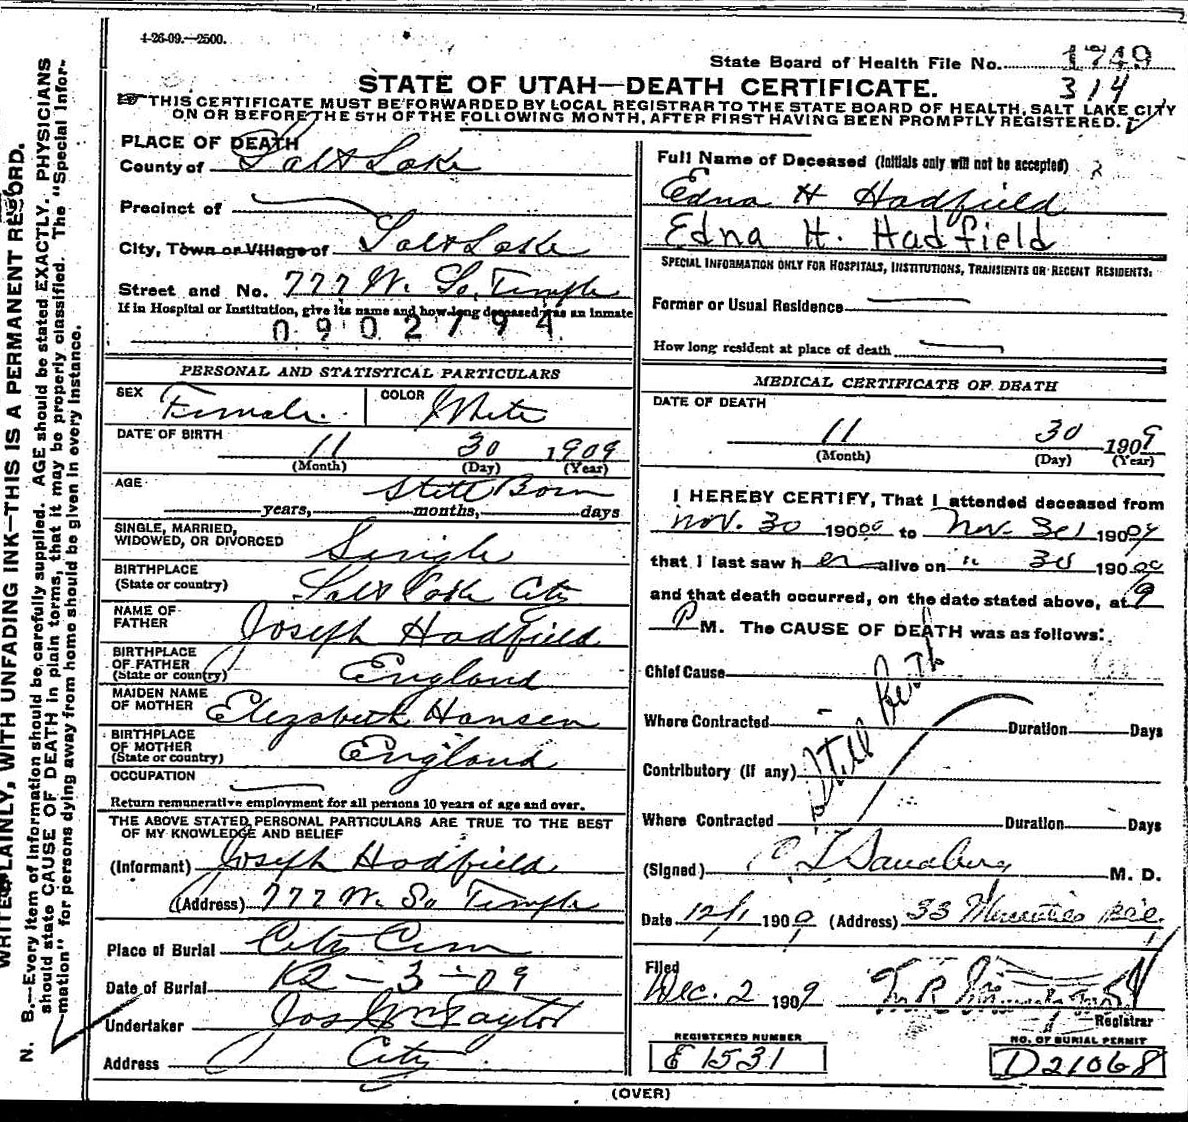 4-26-09.—2500.
State Board of Health File No. 1749
314
STATE OF UTAH—DEATH CERTIFICATE.
THIS CERTIFICATE MUST BE FORWARDED BY LOCAL REGISTRAR TO THE STATE BOARD OF HEALTH, SALT LAKE CITY
ON OR BEFORE THE 5TH OF THE FOLLOWING MONTH, AFTER FIRST HAVING BEEN PROMPTLY REGISTERED.
PLACE OF DEATH
County of Salt Lake
Precinct of
City, Town or Village of Salt Lake
Street and No. 777 W. So. Temple
If in Hospital or Institution, give its name and how long deceased was an inmate
0902794
PERSONAL AND STATISTICAL PARTICULARS
SEX Female. COLOR White
DATE OF BIRTH 11 30 1909
(Month) (Day) (Year)
AGE Still Born
years, months, days
SINGLE, MARRIED,
WIDOWED, OR DIVORCED Single
BIRTHPLACE
(State or country) Salt Lake City
NAME OF
FATHER Joseph Hadfield
BIRTHPLACE
OF FATHER
(State or country) England
MAIDEN NAME
OF MOTHER Elizabeth Hansen
BIRTHPLACE
OF MOTHER
(State or country) England
OCCUPATION
Return remunerative employment for all persons 10 years of age and over.
THE ABOVE STATED PERSONAL PARTICULARS ARE TRUE TO THE BEST
OF MY KNOWLEDGE AND BELIEF
(Informant) Joseph Hadfield
(Address) 777 W. So Temple
Place of Burial City Cem
Date of Burial 12-3-09
Undertaker Jos Wm Taylor
Address City
Full Name of Deceased (Initials only will not be accepted)
Edna H Hadfield
Edna H. Hadfield
SPECIAL INFORMATION ONLY FOR HOSPITALS, INSTITUTIONS, TRANSIENTS OR RECENT RESIDENTS:
Former or Usual Residence
How long resident at place of death
MEDICAL CERTIFICATE OF DEATH
DATE OF DEATH
11 30 1909
(Month) (Day) (Year)
I HEREBY CERTIFY, That I attended deceased from
Nov. 30 190 to Nov. 190
that I last saw her alive on " 30 190
and that death occurred, on the date stated above, at 9
P M. The CAUSE OF DEATH was as follows:
Chief Cause
Still Birth
Where Contracted Duration Days
Contributory (if any)
Where Contracted Duration Days
(Signed) M. D.
Date 12/1 1909 (Address) 33
Filed
Dec. 2 1909
Registrar
REGISTERED NUMBER
E 1531
NO. OF BURIAL PERMIT
D21068
(OVER)
WRITE PLAINLY, WITH UNFADING INK—THIS IS A PERMANENT RECORD.
N. B.—Every item of information should be carefully supplied. AGE should be stated EXACTLY. PHYSICIANS
should state CAUSE OF DEATH in plain terms, that it may be properly classified. The "Special Infor-
mation" for persons dying away from home should be given in every instance.